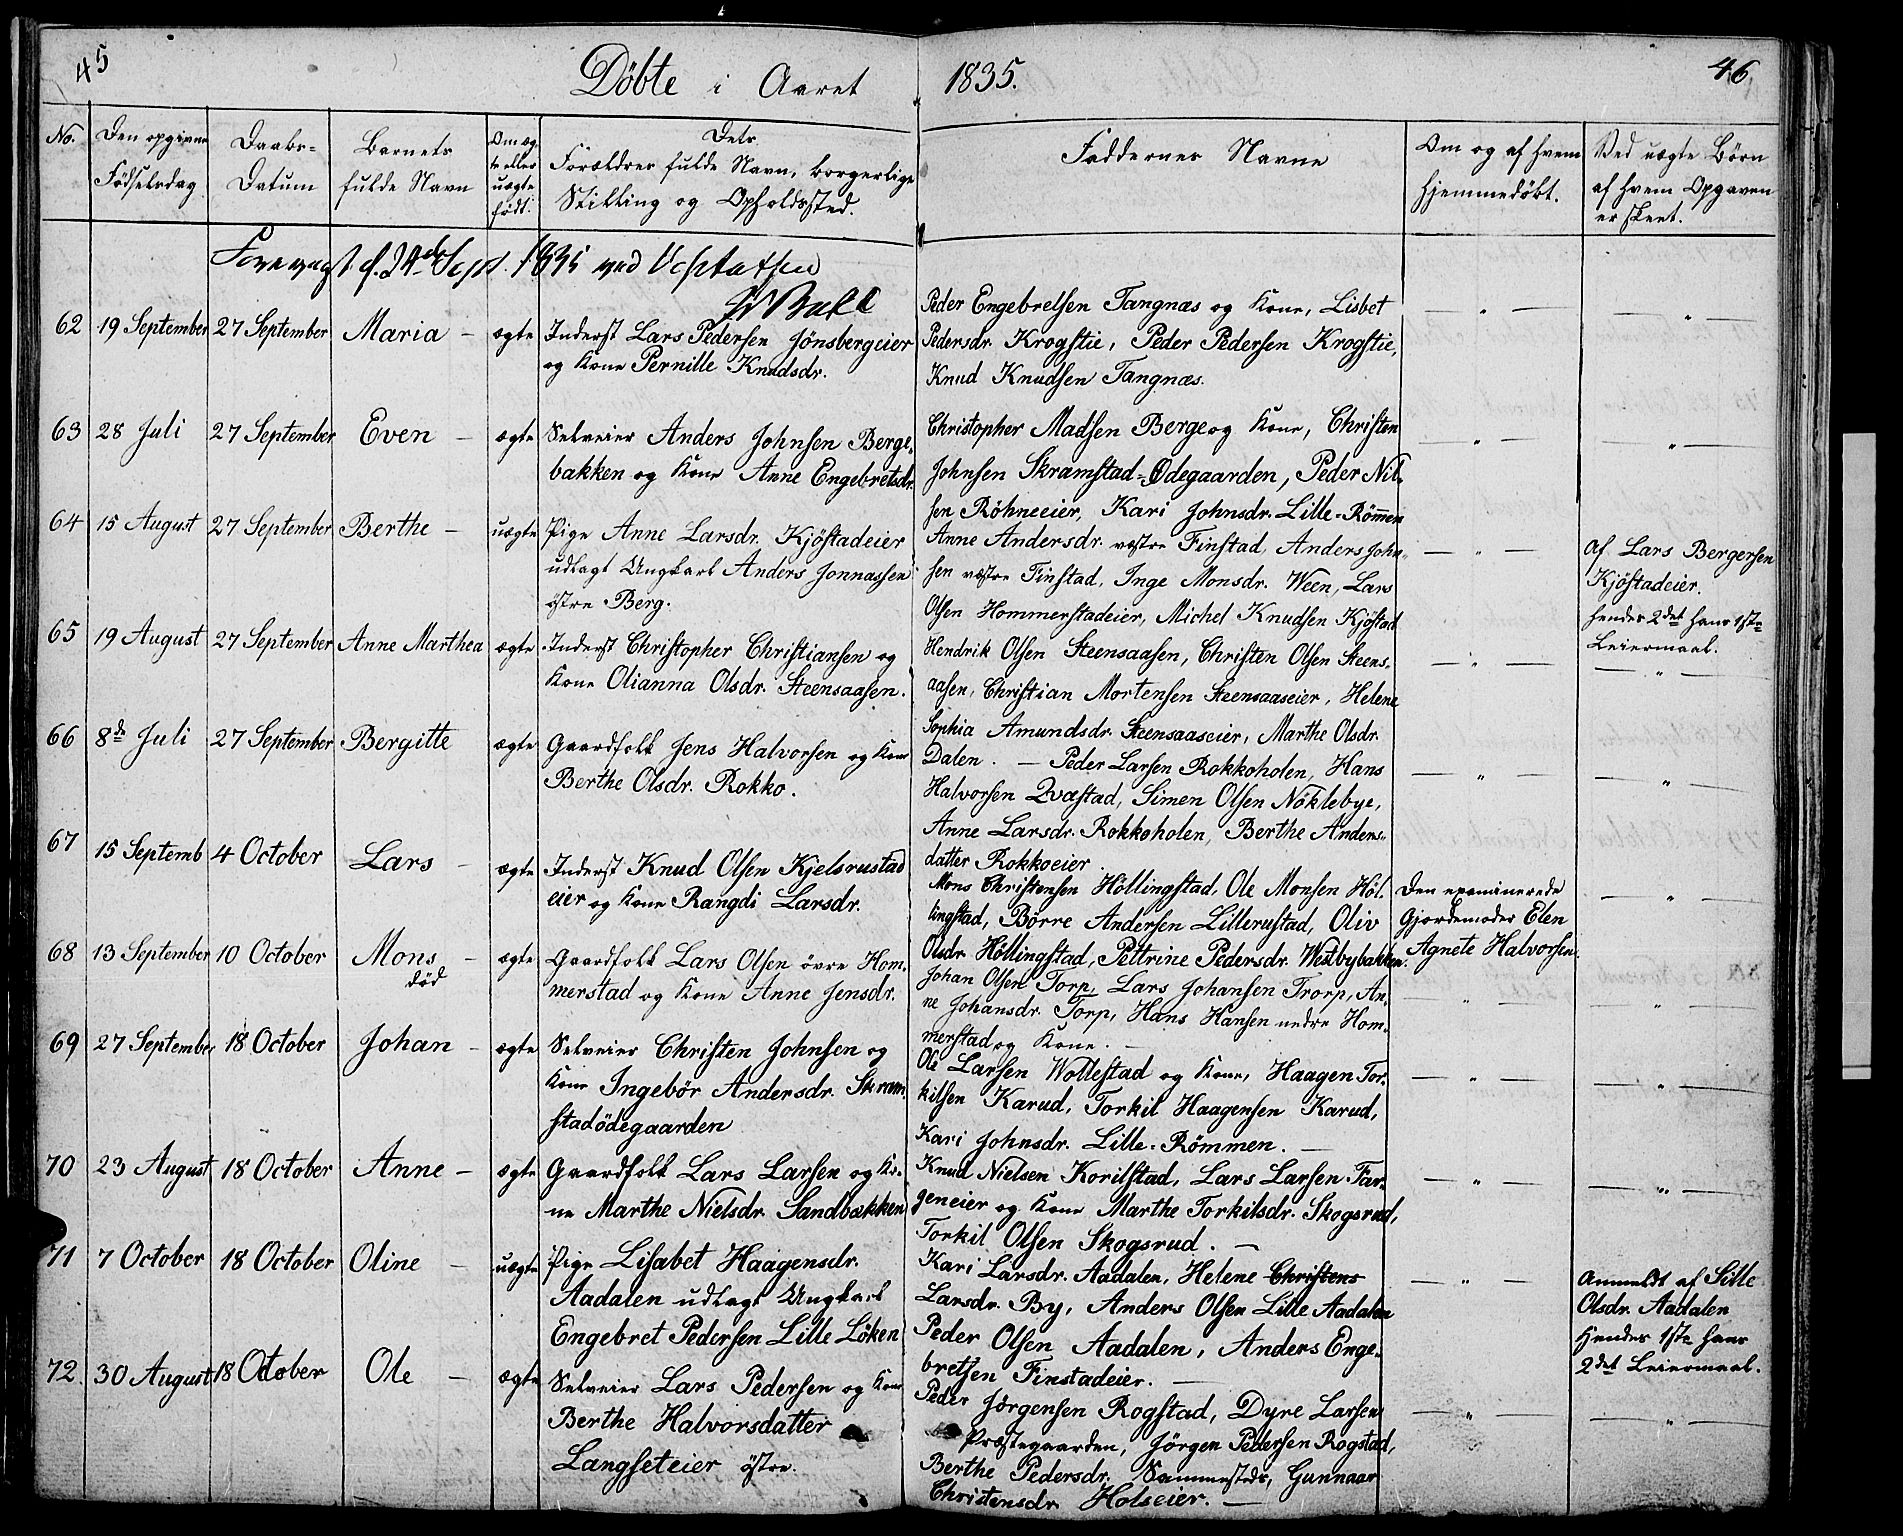 45
Döbte i Aaret 1835.
46
No.
Den opgivne Födselsdag
Daabs-Datum
Barnets fulde Navn
Om ægte eller uægte født.
Dets Forældres fulde Navn, borgerlige Stilling og Opholdssted.
Faddernes Navne
Om og af hvem hjemmedöbt.
Ved uægte Börn af hvem Opgaven er skeet.
Forevagt d. 24de Sept. 1835 ved Visitatsen
62 19 September 27 September Maria — ægte
Inderst Lars Pedersen Jönsbergeier
og Kone Pernille Knudsdr.
Peder Engebretsen Tangnæs og Kone, Lisbet
Pedersdr. Krogstie, Peder Pedersen Krogstie,
Knud Knudsen Tangnæs.
— " —
— " —
63 28 Juli 27 September Even — ægte
Selveier Anders Johnsen Berge-
bakken og Kone Anne Engebretsdr.
Christopher Madsen Berge og Kone, Christen
Johnsen Skramstad-Ödegaarden, Peder Nil-
sen Röhneeier, Kari Johnsdr. Lille-Römen
— " —
— " —
64 15 August 27 September Berthe — uægte
Pige Anne Larsdr. Kjöstadeier
udlagt Ungkarl Anders Jonnassen
østre Berg.
Anne Andersdr. væstre Finstad, Anders John-
sen væstre Finstad, Inge Monsdr. Ween, Lars
Olsen Hommerstadeier, Michel Knudsen Kjöstad
— " —
Af Lars Bergersen
Kjöstadeier.
hendes 2det hans 1ste
Leiermaal.
65 19 August 27 September Anne Marthea ægte
Inderst Christopher Christiansen og
Kone Olianna Olsdr. Steensaasen.
Hendrik Olsen Steensaasen, Christen Olsen Steens-
aasen, Christian Mortensen Steensaaseier, Helene
Sophia Amundsdr. Steensaaseier, Marthe Olsdr.
Dalen. —
— " —
— " —
66 8de Juli 27 September Bergitte ægte
Gaardfolk Jens Halvorsen og Kone
Berthe Olsdr. Rokko.
Peder Larsen Rokkoholen, Hans
Halvorsen Qvæstad, Simen Olsen Nöklebye,
Anne Larsdr. Rokkoholen, Berthe Anders-
datter Rokkoeier.
— " —
— " —
67 15 Septemb 4 October Lars — ægte
Inderst Knud Olsen Kjelsrustad
eier og Kone Rangdi Larsdr.
Mons Christensen Höllingstad, Ole Monsen Höl-
lingstad, Börre Andersen Lillerustad, Oliv
Olsdr. Höllingstad, Pettrine Pedersdr. Westbybakken.
Den examinerede
Gjordemoder Elen
Agnete Halvorsen.
— " —
68 13 September 10 October Mons — ægte
död
Gaardfolk Lars Olsen övre Hom-
merstad og Kone Anne Jensdr.
Johan Olsen Torp, Lars Johansen Trorp, An-
ne Johansdr. Torp, Hans Hansen nedre Hom-
merstad og Kone. —
— " —
— " —
69 27 September 18 October Johan — ægte
Selveier Christen Johnsen og
Kone Ingebör Andersdr. Skram-
stadödegaarden
Ole Larsen Wollestad og Kone, Haagen Tor-
kilsen Karud, Torkil Haagensen Karud,
Kari Johnsdr. Lille-Römmen. —
— " —
— " —
70 23 August 18 October Anne — ægte
Gaardfolk Lars Larsen og Ko-
ne Marthe Nielsdr. Sandbækken
Knud Nielsen Korilstad, Lars Larsen Far-
geneier og Kone Marthe Torkilsdr. Skogsrud,
Torkil Olsen Skogsrud. —
— " —
— " —
71 7 October 18 October Oline — uægte
Pige Lisabet Haagensdr.
Aadalen udlagt Ungkarl
Engebret Pedersen Lille Löken
Kari Larsdr. Aadalen, Helene Christens
Larsdr. By, Anders Olsen Lille Aadalen
Peder Olsen Aadalen, Anders Enge-
bretsen Finstadeier. —
— " —
Anmeldt af Sille
Olsdr. Aadalen
Hendes 1ste hans
2det Leiermaal.
72. 30 August 18 October Ole — ægte
Selveier Lars Pedersen og Kone
Berthe Halvorsdatter
Langseteier østre.
Peder Jörgensen Rogstad, Dyre Larsen
Præstegaarden, Jörgen Pedersen Rogstad,
Berthe Pedersdr. Sammesteds, Gunnaar
Christensdr. Holseier. —
— " —
— " —